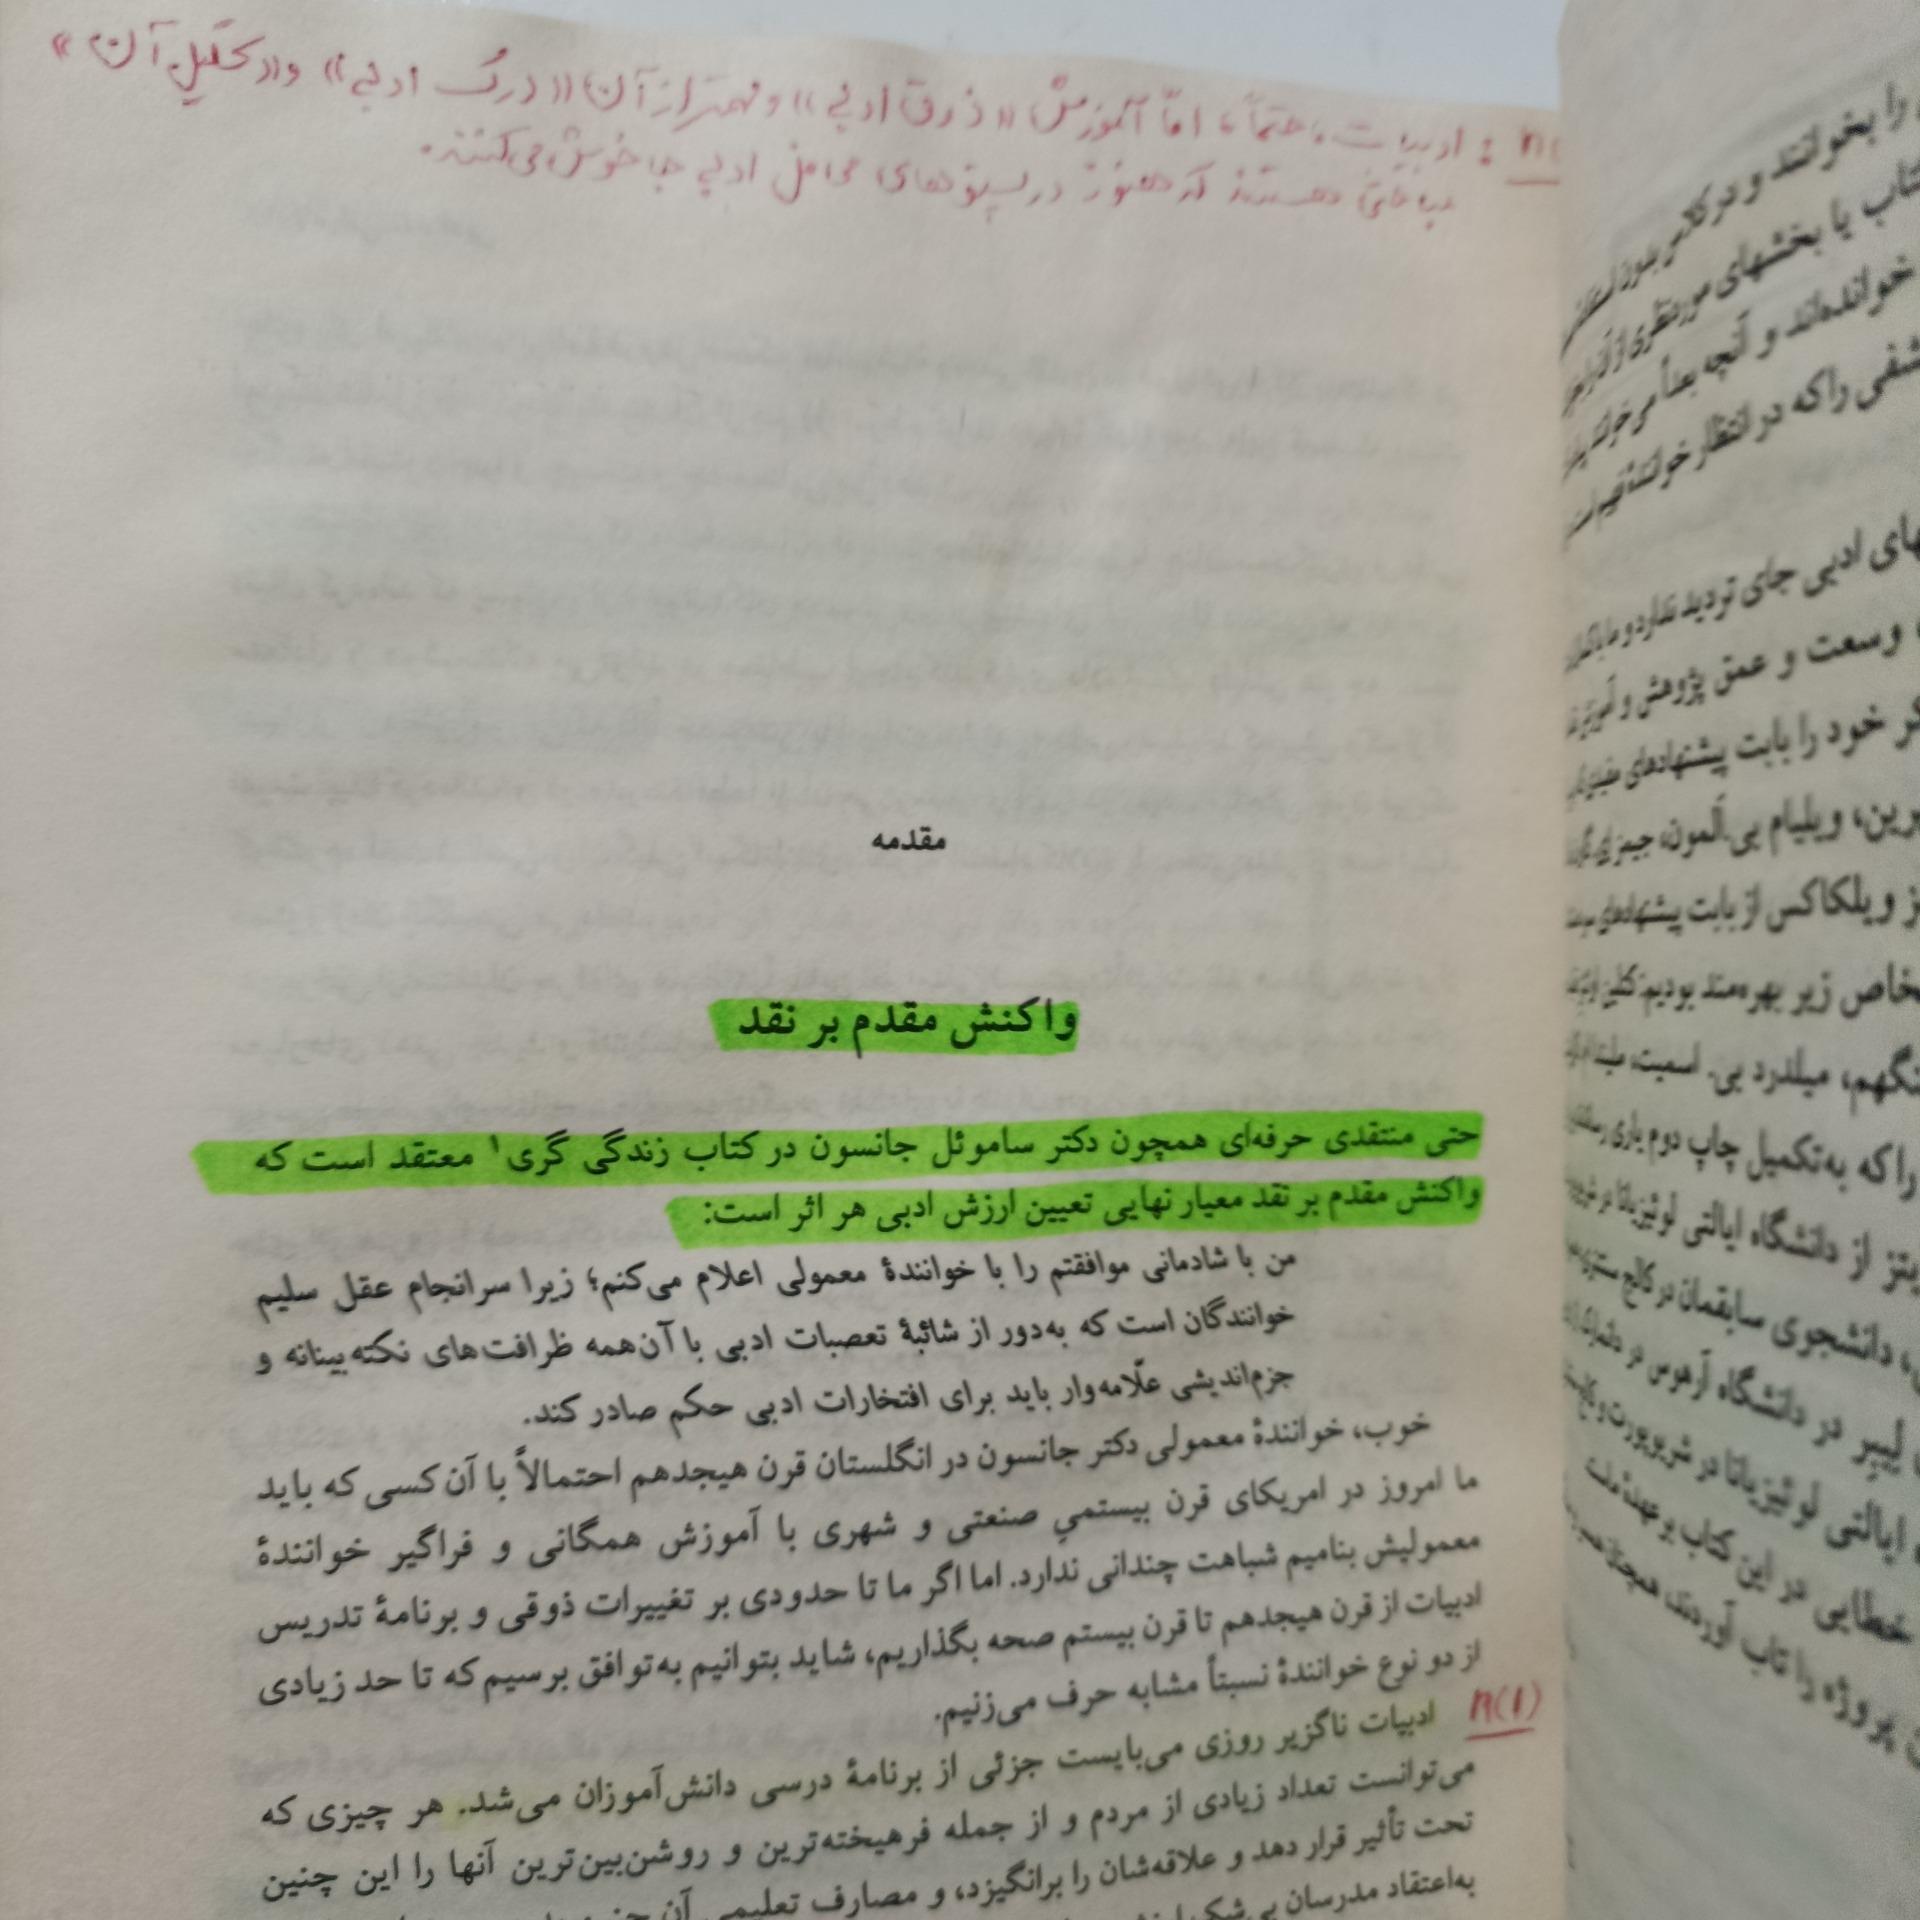 n(
: ادبیات، حتماً، اما آموزش «ذوق ادبی» و مهمتر از آن «درک ادبی» و «تحلیل آن»
هستند که هنوز در پستوهای محافل ادبی جا خوش می‌کنند.
مقدمه
واکنش مقدم بر نقد
حتی منتقدی حرفه‌ای همچون دکتر ساموئل جانسون در کتاب زندگی گری۱ معتقد است که
واکنش مقدم بر نقد معیار نهایی تعیین ارزش ادبی هر اثر است:
من با شادمانی موافقتم را با خوانندهٔ معمولی اعلام می‌کنم؛ زیرا سرانجام عقل سلیم
خوانندگان است که به‌دور از شائبهٔ تعصبات ادبی با آن‌همه ظرافت‌های نکته‌بینانه و
جزم‌اندیشی علّامه‌وار باید برای افتخارات ادبی حکم صادر کند.
خوب، خوانندهٔ معمولی دکتر جانسون در انگلستان قرن هیجدهم احتمالاً با آن کسی که باید
ما امروز در امریکای قرن بیستمیِ صنعتی و شهری با آموزش همگانی و فراگیر خوانندهٔ
معمولیش بنامیم شباهت چندانی ندارد. اما اگر ما تا حدودی بر تغییرات ذوقی و برنامهٔ تدریس
ادبیات از قرن هیجدهم تا قرن بیستم صحه بگذاریم، شاید بتوانیم به‌توافق برسیم که تا حد زیادی
از دو نوع خوانندهٔ نسبتاً مشابه حرف می‌زنیم.
n(۱)
ادبیات ناگزیر روزی می‌بایست جزئی از برنامهٔ درسی دانش‌آموزان می‌شد. هر چیزی که
می‌توانست تعداد زیادی از مردم و از جمله فرهیخته‌ترین و روشن‌بین‌ترین آنها را این چنین
تحت تأثیر قرار دهد و علاقه‌شان را برانگیزد، و مصارف تعلیمی آن
به‌اعتقاد مدرسان بی‌شک
را بخوانند و در کلاس بدون
کتاب یا بخشهای موردنظری از آن را
خوانده‌اند و آنچه بعداً می‌خوانند
را که در انتظار خوانندهٔ فهیم است
های ادبی جای تردید ندارد و ما با
وسعت و عمق پژوهش و آموزش
خود را بابت پیشنهادهای مفید
ویلیام بی. آلمون، جیمز ای.
ویلکاکس از بابت پیشنهادهای
زیر بهره‌مند بودیم:
میلدرد بی. اسمیت،
را که به‌تکمیل چاپ دوم یاری
از دانشگاه ایالتی لوئیزیانا در
دانشجوی سابقمان در کالج
در دانشگاه آرهوس در
ایالتی لوئیزیانا در شریوپورت و
خطایی در این کتاب بر عهدهٔ ماست
پروژه را تاب آوردند، همچنان